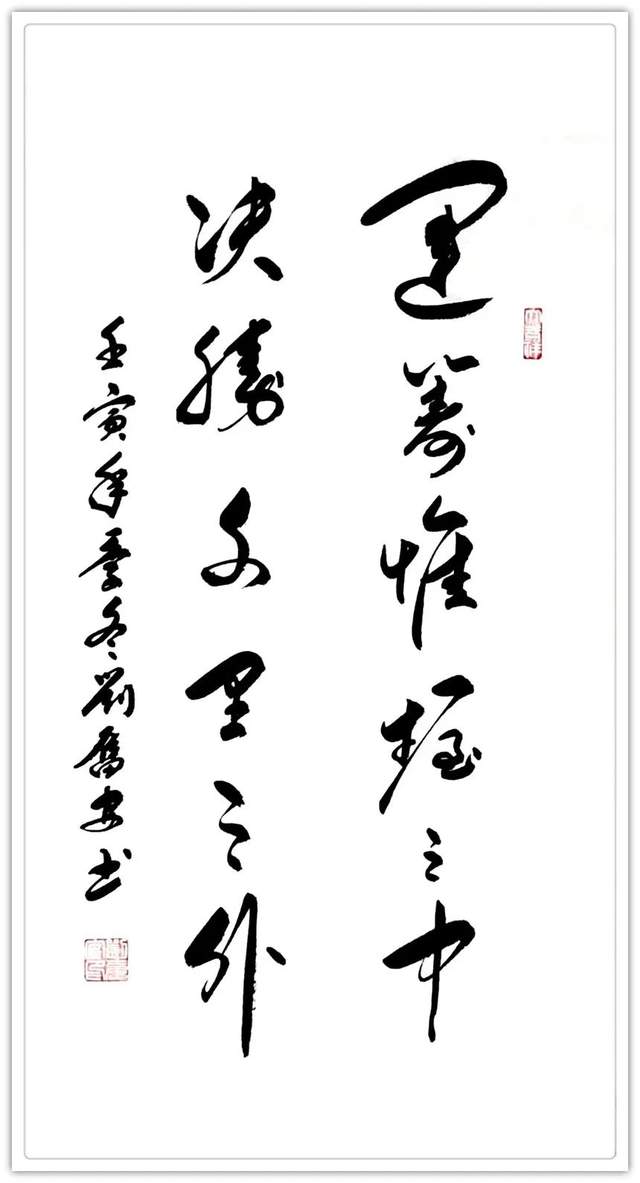 運筹帷幄之中
决勝千里之外
壬寅年季冬劉奮安书